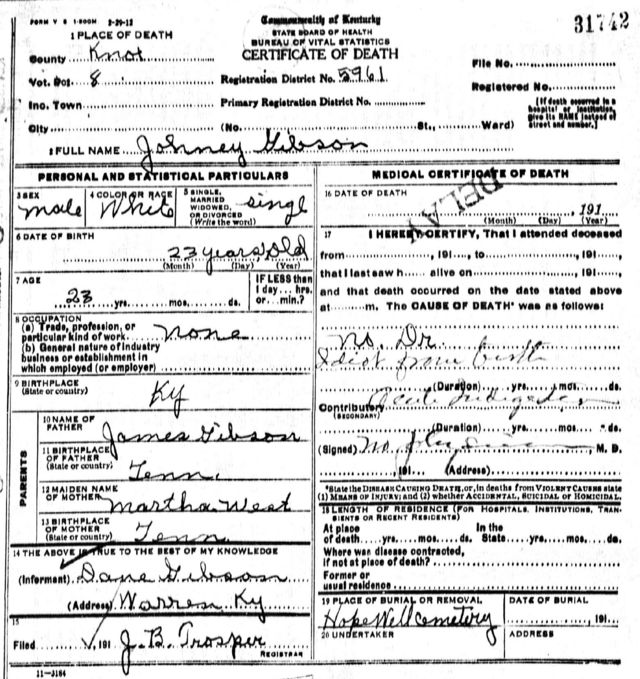 FORM V S 1-500M 2-29-12
Commonwealth of Kentucky
STATE BOARD OF HEALTH
BUREAU OF VITAL STATISTICS
CERTIFICATE OF DEATH
31742
1 PLACE OF DEATH
County Knox
Vot. Pct 8
Registration District No. 5961
File No.
Registered No.
Inc. Town
Primary Registration District No.
[If death occurred in a hospital or institution, give its NAME instead of street and number.]
City (No. St., Ward)
2 FULL NAME Johney Gibson
PERSONAL AND STATISTICAL PARTICULARS
3 SEX male
4 COLOR OR RACE White
5 SINGLE, MARRIED WIDOWED, OR DIVORCED (Write the word) singl
6 DATE OF BIRTH
23 years old
(Month) (Day) (Year)
7 AGE
23 yrs. mos. ds.
IF LESS than 1 day hrs. or min.?
8 OCCUPATION
(a) Trade, profession, or particular kind of work none
(b) General nature of industry business or establishment in which employed (or employer)
9 BIRTHPLACE
(State or country) Ky
PARENTS
10 NAME OF FATHER James Gibson
11 BIRTHPLACE OF FATHER (State or country) Tenn.
12 MAIDEN NAME OF MOTHER Martha West
13 BIRTHPLACE OF MOTHER (State or country) Tenn
14 THE ABOVE IS TRUE TO THE BEST OF MY KNOWLEDGE
(Informant) Gibson
(Address) Warren Ky
15
Filed 191 J. B. Trosper
REGISTRAR
11-3184
MEDICAL CERTIFICATE OF DEATH
16 DATE OF DEATH
DELAY
191
(Month) (Day) (Year)
17 I HEREBY CERTIFY, That I attended deceased
from 191 , to 191 ,
that I last saw h alive on 191 ,
and that death occurred on the date stated above
at m. The CAUSE OF DEATH* was as follows:
No. Dr.
Idiot from birth
(Duration) yrs. mos. ds.
Contributory
(SECONDARY)
(Duration) yrs. mos. ds.
(Signed) No M. D.
191 (Address)
*State the DISEASE CAUSING DEATH, or, in deaths from VIOLENT CAUSES state
(1) MEANS OF INJURY; and (2) whether ACCIDENTAL, SUICIDAL or HOMICIDAL.
18 LENGTH OF RESIDENCE (FOR HOSPITALS, INSTITUTIONS, TRANSIENTS OR RECENT RESIDENTS)
At place of death yrs. mos. ds. In the State yrs. mos. ds.
Where was disease contracted,
if not at place of death?
Former or usual residence
19 PLACE OF BURIAL OR REMOVAL
Hope Well cemetery
DATE OF BURIAL
191
20 UNDERTAKER
ADDRESS